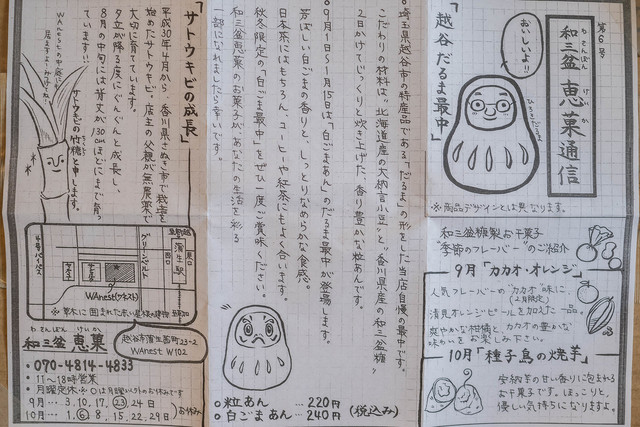 第6号
和三盆 恵菓通信
わさんぼん けいか
おいしいよ!!
ひょうきだるま
※商品デザインとは異なります。
『越谷だるま最中』
◦埼玉県越谷市の特産品である「だるま」の形をした当店自慢の最中です。
こだわりの材料は、"北海道産の大納言小豆"と"香川県産の和三盆糖"
2日かけてじっくりと炊き上げた、香り豊かな粒あんです。
◦9月1日〜1月15日は、「白ごまあん」のだるま最中が登場します。
芳ばしい白ごまの香りと、しっとりなめらかな食感。
日本茶にはもちろん、コーヒーや紅茶にもよく合います。
秋冬限定の「白ごま最中」をぜひ一度ご賞味ください。
和三盆恵菓のお菓子が、あなたの生活を彩る
一部になれましたら幸いです。
◦粒あん … 220円
◦白ごまあん … 240円
(税込み)
和三盆糖製お干菓子
"季節のフレーバー"のご紹介
9月「カカオ・オレンジ」
人気フレーバーの"カカオ"味に、
(2月限定)
清見オレンジピールを加えた一品。
爽やかな柑橘と、カカオの豊かな
味わいをお楽しみ下さい。
10月「種子島の焼芋」
安納芋の甘い香りに包まれる
お干菓子です。ほっこりと、
優しい気持ちになりますよ。
「サトウキビの成長」
平成30年4月から、香川県さぬき市で栽培を
始めたサトウキビ。店主の父親が無農薬で
大切に育てています。
夕立が降る度にぐんぐんと成長し、
8月の中旬には背丈が130cmほどにまで育っ
ています!!
サトウキビの竹糖と申します。
WAnestの中庭に
居ますよ
4号バイパス
グリーンベルト
蒲生駅
西口
東口
WAnest(ワネスト)
※草木に囲まれた赤い屋根の建物
和三盆 恵菓
わさんぼん けいか
越谷市蒲生茜町23-2
WAnest W102
・070-4814-4833
・11〜18時営業
・月曜定休 ※○は月曜以外のお休みです
9月… 3.10.17.㉓.24日
10月… 1.⑥.8.15.22.29日
お休み